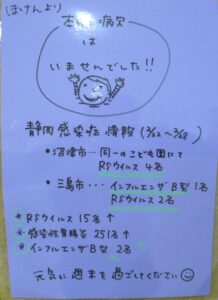 (ほけんより)
本日の病欠
は
いませんでした!!
静岡感染症情報(2/22~2/28)
・沼津市…同一のこども園にて
RSウイルス 4名
・三島市…インフルエンザB型 1名
RSウイルス 2名
RSウイルス 15名↑
感染性胃腸炎 251名↑
インフルエンザB型 2名
元気に週末を過ごしてください